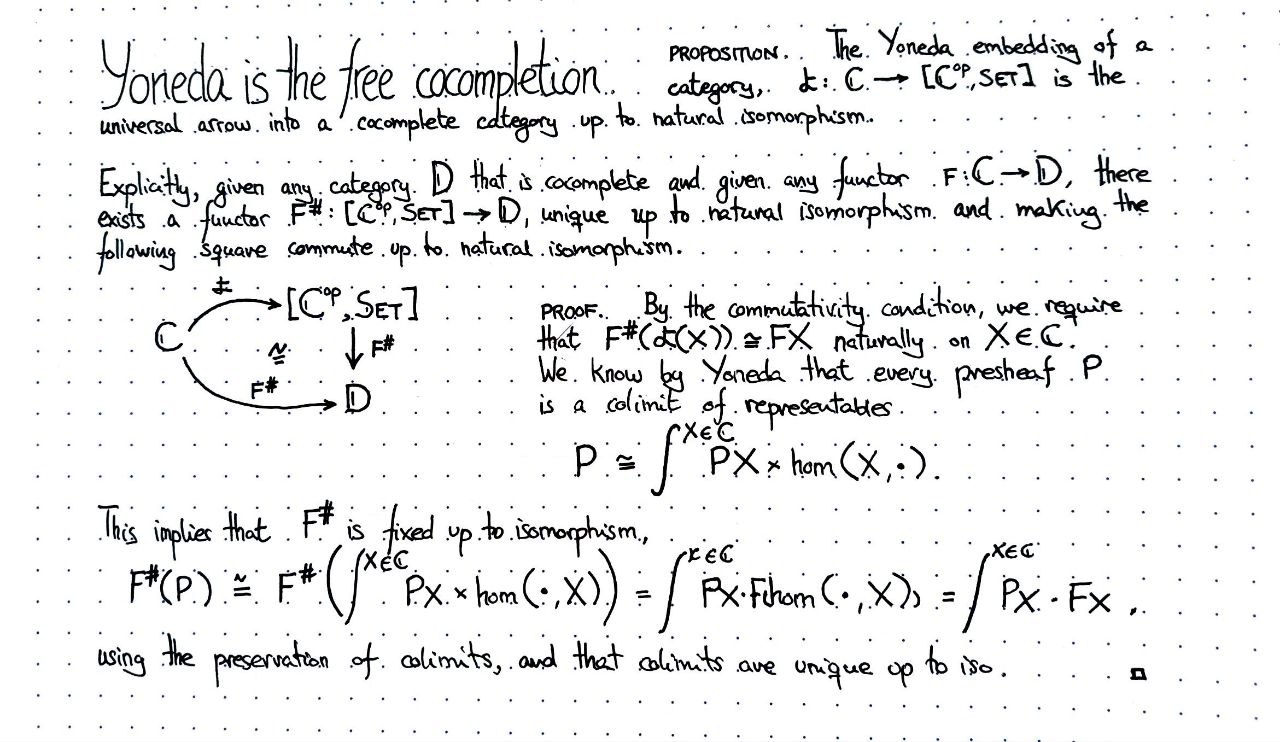 Yoneda is the free cocompletion.
PROPOSITION. The Yoneda embedding of a
category, よ: ℂ → [ℂᵒᵖ, SET] is the
universal arrow into a cocomplete category up to natural isomorphism.
Explicitly, given any category 𝔻 that is cocomplete and given any functor F: ℂ → 𝔻, there
exists a functor F#: [ℂᵒᵖ, SET] → 𝔻, unique up to natural isomorphism and making the
following square commute up to natural isomorphism.
よ
ℂ [ℂᵒᵖ, SET]
≅ F#
F# 𝔻
PROOF. By the commutativity condition, we require
that F#(よ(X)) ≅ FX naturally on X∈ℂ.
We know by Yoneda that every presheaf P
is a colimit of representables.
P ≅ ∫^{X∈ℂ} PX × hom(X, ·).
This implies that F# is fixed up to isomorphism,
F#(P) ≅ F#(∫^{X∈ℂ} PX × hom(·, X)) = ∫^{X∈ℂ} PX · F(hom(·, X)) = ∫^{X∈ℂ} PX · FX,
using the preservation of colimits, and that colimits are unique up to iso. □